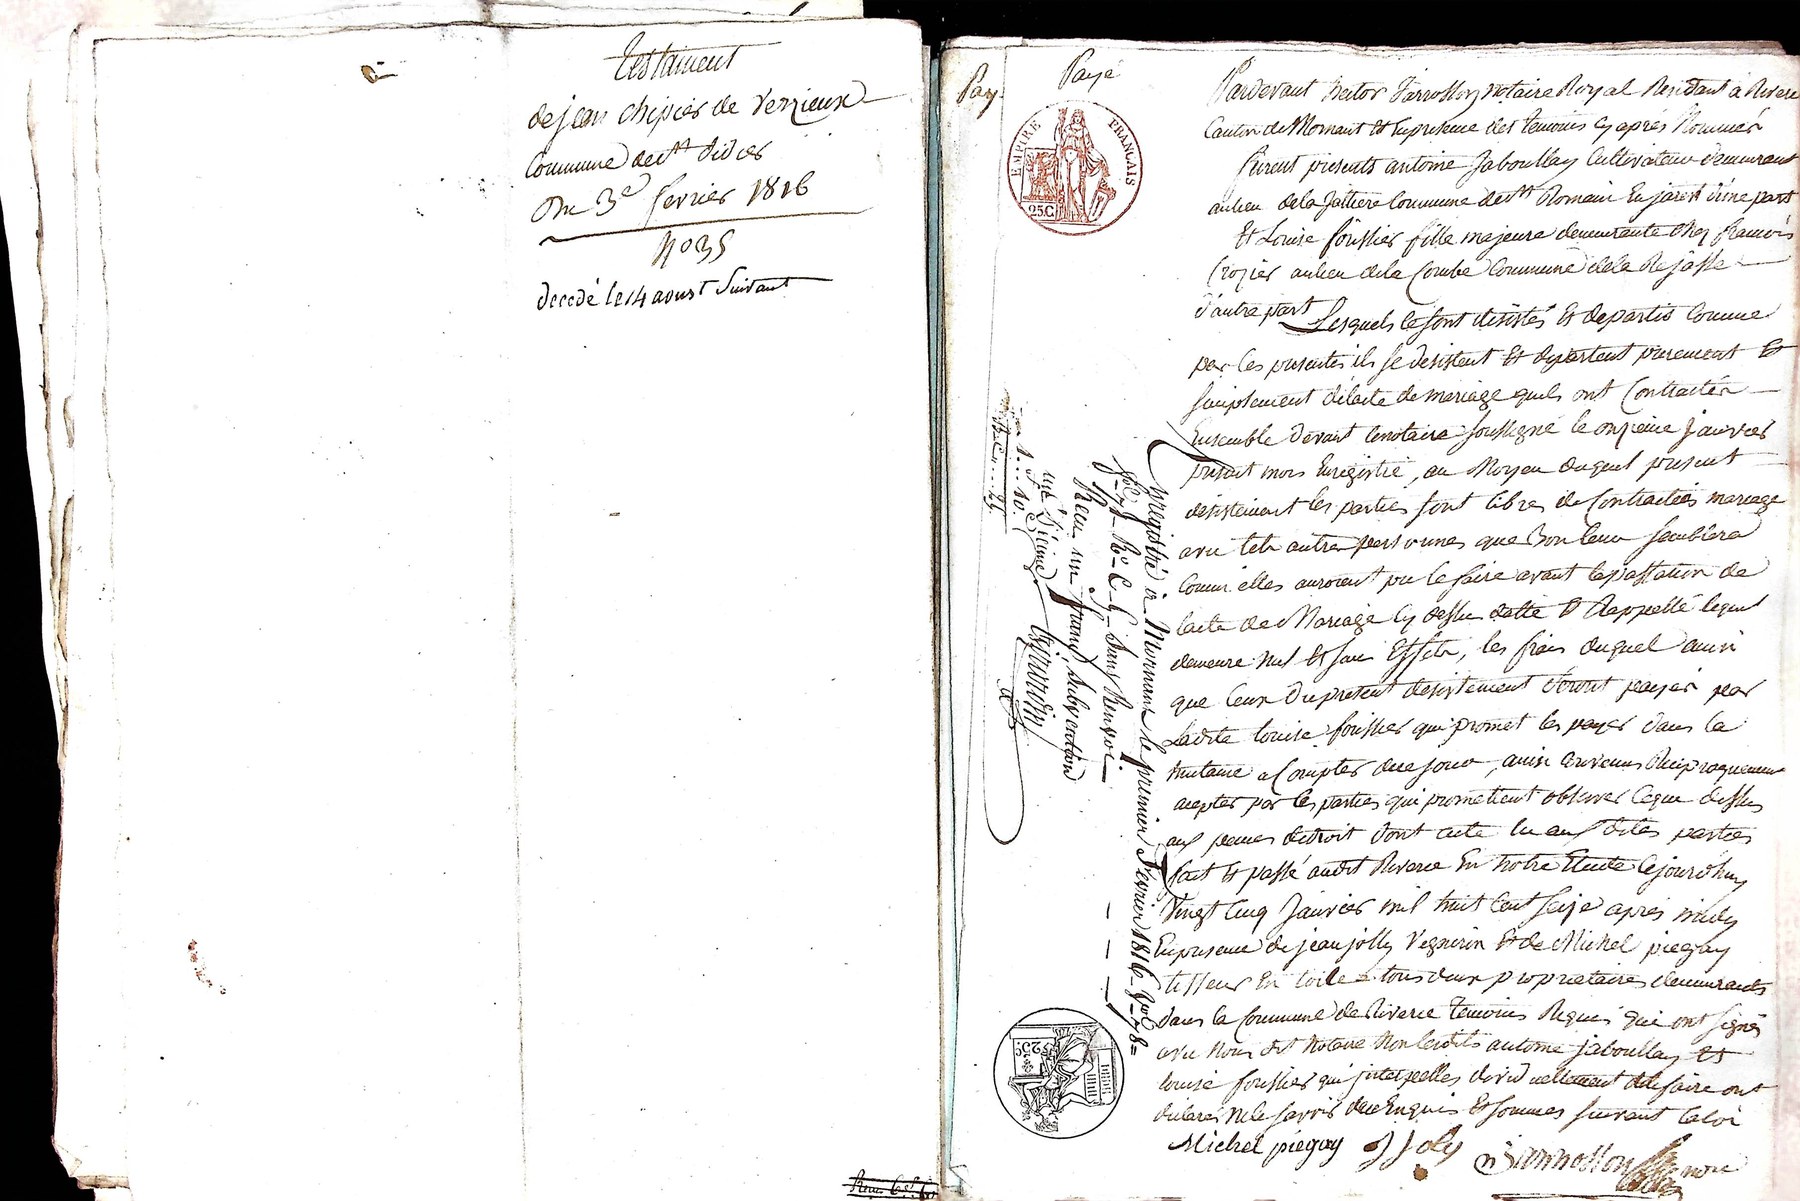 Testament
de jean chipier de Verzieux
Commune de st Didier
Du 3e fevrier 1816
No 35
decedé le 14 aoust Suivant
Pay
Payé
EMPIRE FRANÇAIS
25C
Pardevant hector Jarrosson notaire Royal Residant à Riverie
Canton de Mornant Et En presence des temoins cy apres Nommés
furent presents antoine Jaboullay Cultivateur demeurant
au lieu de la Jattiere Commune de st Romain En jarest d'une part
Et Louise foussier fille majeure demeurante chez francois
Crozier au lieu de la Combe Commune de la Rajasse
d'autre part
Lesquels se sont desistés Et departis comme
par Ces presentes ils se desistent Et departent purement Et
simplement de l'acte de mariage quils ont Contracter
Ensemble devant le notaire soussigné le onzieme Janvier
present mois Enregistré, au Moyen duquel present
desistement les parties sont libres de Contracter mariage
avec telle autre personnes que bon leur semblera
Comm'elles auroient pu le faire avant la passation de
lacte de Mariage cy dessus datté Et Rappellé lequel
demeure nul Et sans Effets, les frais duquel ainsi
que Ceux du present desistement seront payés par
Ladite louise foussier qui promet les payer dans la
huitaine a Compter de ce jour, ainsi convenu Reciproquement
accepter par les parties qui promettent observer ce que dessus
aux peines de droit dont acte lu aux dites parties
fait Et passé audit Riverie En notre Etude Cejourd'huy
Vingt Cinq Janvier mil huit Cent Seize après midy
En presence de jean jolly Vigneron Et de Michel piegay
tisseur En toile tous deux proprietaires demeurants
dans la Commune de Riverie temoins Requis qui ont signés
avec Nous dit Notaire Non lesdits antoine jaboullay Et
louise foussier qui interpellés dividuellement de le faire ont
declarés ne le savoir de ce Enquis Et sommés suivant la loi
Michel piegay J Joly Jarrosson nore
Enregistré à Mornant le premier Fevrier 1816 Vol 78
Recu un franc, subvention
un Decime
Desjardin
25C